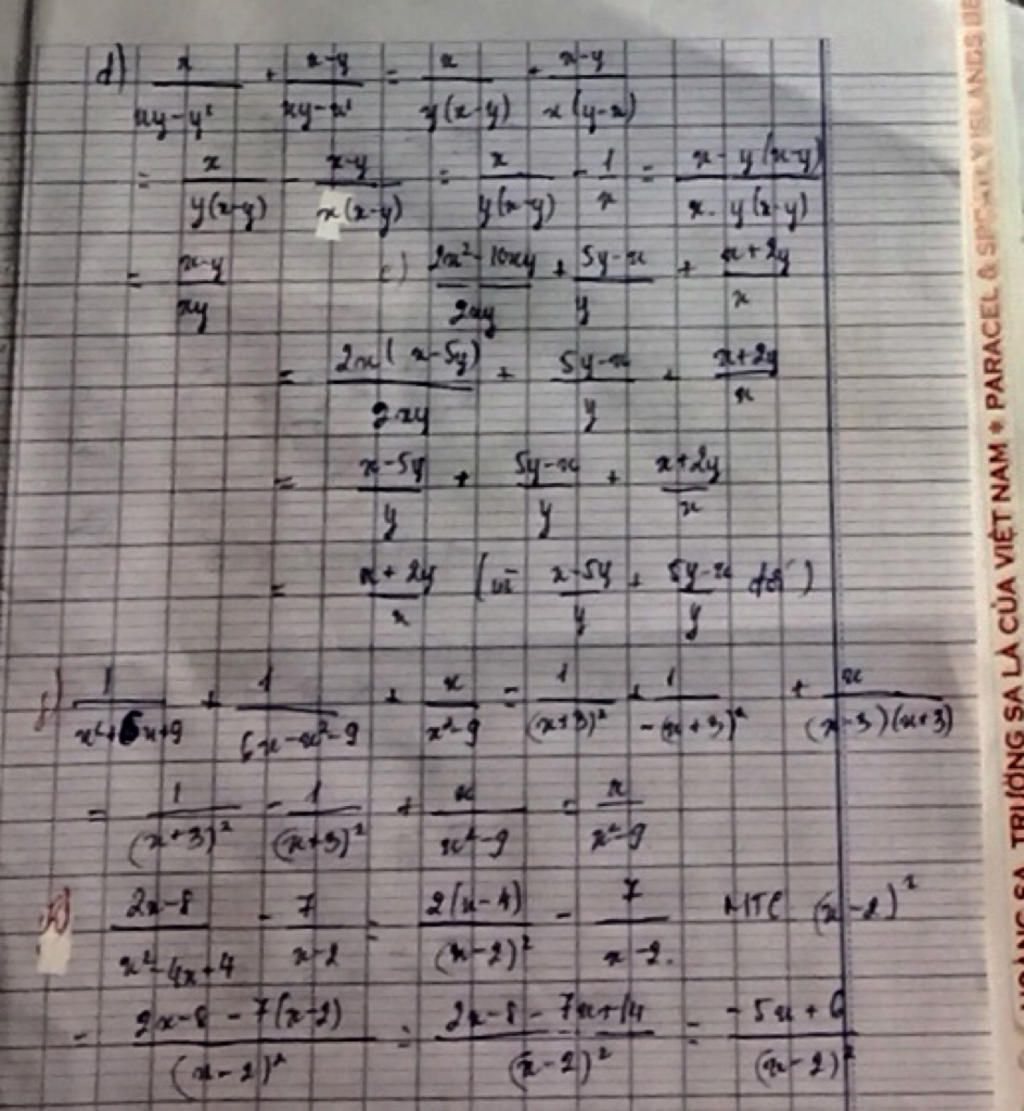 d) x/(xy-y²) + (x-y)/(xy-x²) = x/(y(x-y)) + (x-y)/(x(y-x))
= x/(y(x-y)) - (x-y)/(x(x-y)) = x/(y(x-y)) - 1/x = (x-y(x-y))/(x.y(x-y))
= (x-y)/(xy)
e) (2x²-10xy)/(2xy) + (5y-x)/y + (x+2y)/x
= (2x(x-5y))/(2xy) + (5y-x)/y + (x+2y)/x
= (x-5y)/y + (5y-x)/y + (x+2y)/x
= (x+2y)/x ( (x-5y)/y + (5y-x)/y )
1/(x²+6x+9) + 1/(6x-x²-9) + x/(x²-9) = 1/(x+3)² + 1/(-(x+3)²) + x/((x-3)(x+3))
= 1/(x+3)² - 1/(x+3)² + x/(x²-9) = x/(x²-9)
(2x-8)/(x²-4x+4) - 7/(x-2) = (2(x-4))/(x-2)² - 7/(x-2). MTC (x-2)²
= (2x-8-7(x-2))/(x-2)² = (2x-8-7x+14)/(x-2)² = (-5x+6)/(x-2)²
HOÀNG SA, TRƯỜNG SA LÀ CỦA VIỆT NAM * PARACEL & SPRATLY ISLANDS BE